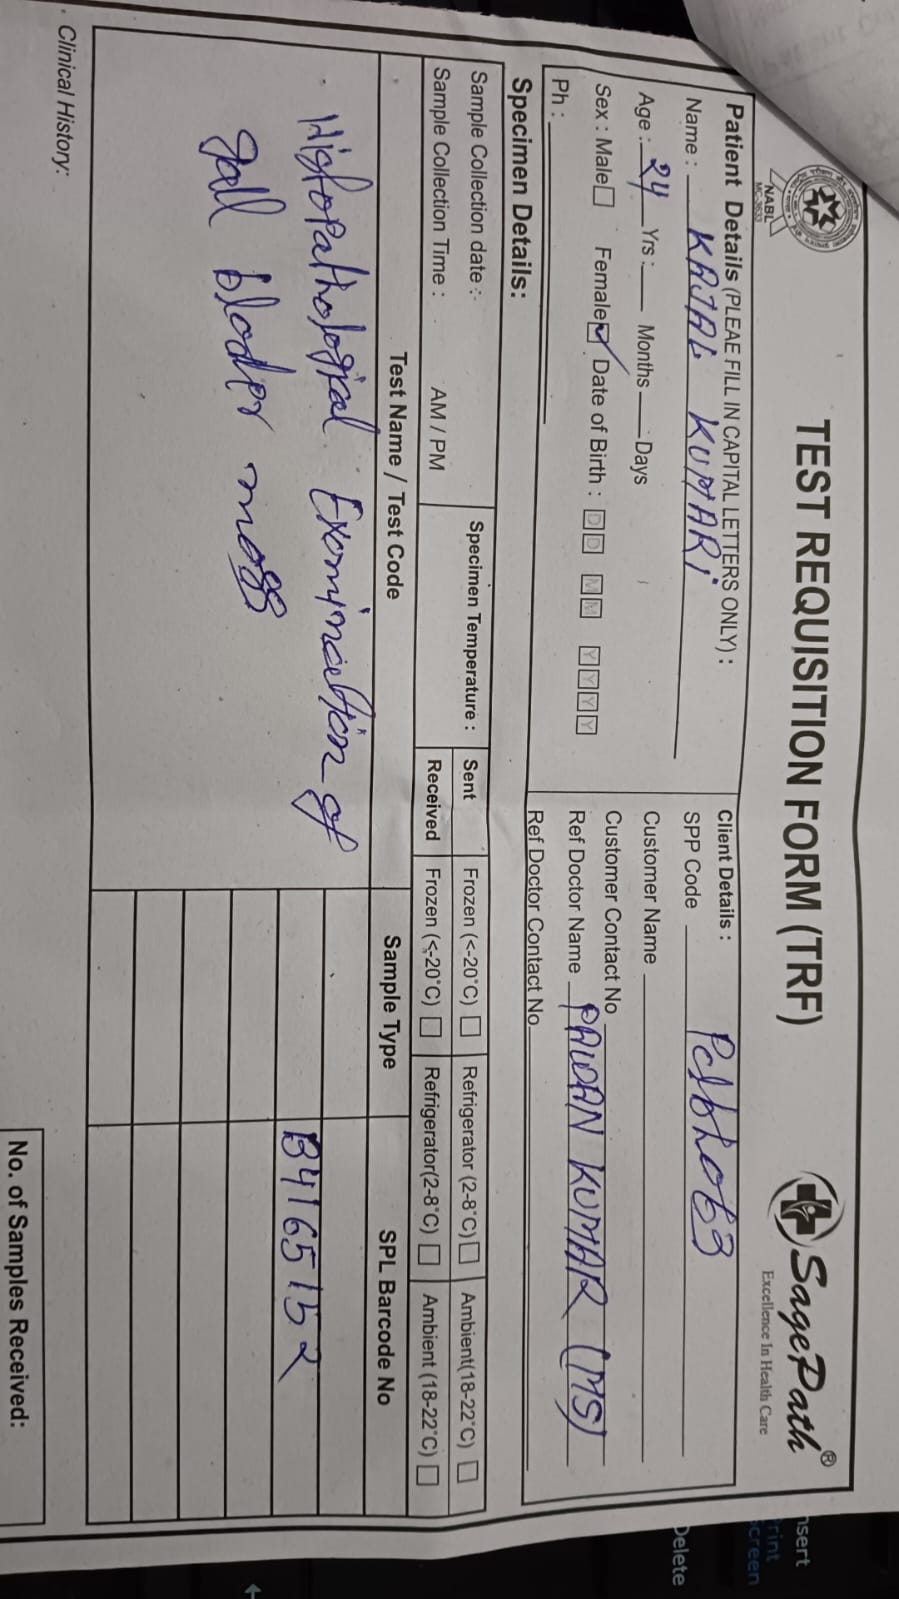 TEST REQUISITION FORM (TRF)
NABL
MC-3633
SagePath®
Excellence In Health Care
Patient Details (PLEAE FILL IN CAPITAL LETTERS ONLY) :
Name : KAJAL KUMARI
Age : 24 Yrs : Months Days
Sex : Male Female Date of Birth : D D M M Y Y Y Y
Ph :
Client Details :
SPP Code
Customer Name
Customer Contact No
Ref Doctor Name PAWAN KUMAR (MS)
Ref Doctor Contact No
Specimen Details:
Sample Collection date :- Specimen Temperature : Sent Frozen (<-20°C) Refrigerator (2-8°C) Ambient(18-22°C)
Sample Collection Time : AM / PM Received Frozen (<-20°C) Refrigerator(2-8°C) Ambient (18-22°C)
Test Name / Test Code Sample Type SPL Barcode No
Histopathological Examination of
gall blader mass
B4165152
Clinical History:
No. of Samples Received:
nsert
rint
creen
Delete